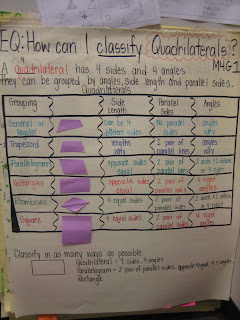 EQ: How can I classify Quadrilaterals?
M4G1
A Quadrilateral has 4 sides and 4 angles
They can be grouped by angles, side length and parallel sides.
Quadrilaterals
Grouping Side Length Parallel Sides Angles
General or can be 4 different sides No parallel sides angles vary
Trapezoid lengths vary pair of parallel lines angles vary
Parallelograms opposite sides equal 2 pair of parallel sides
Rectangles opposite sides equal 2 pair of parallel sides 4 right angles
Rhombuses 4 equal sides 2 pair of parallel sides
Square 4 equal sides 2 pair of parallel sides 4 right angles
Classify in as many ways as possible
Quadrilateral - 4 sides, 4 angles
Parallelogram - 2 pair of parallel sides, opposite
Rectangle